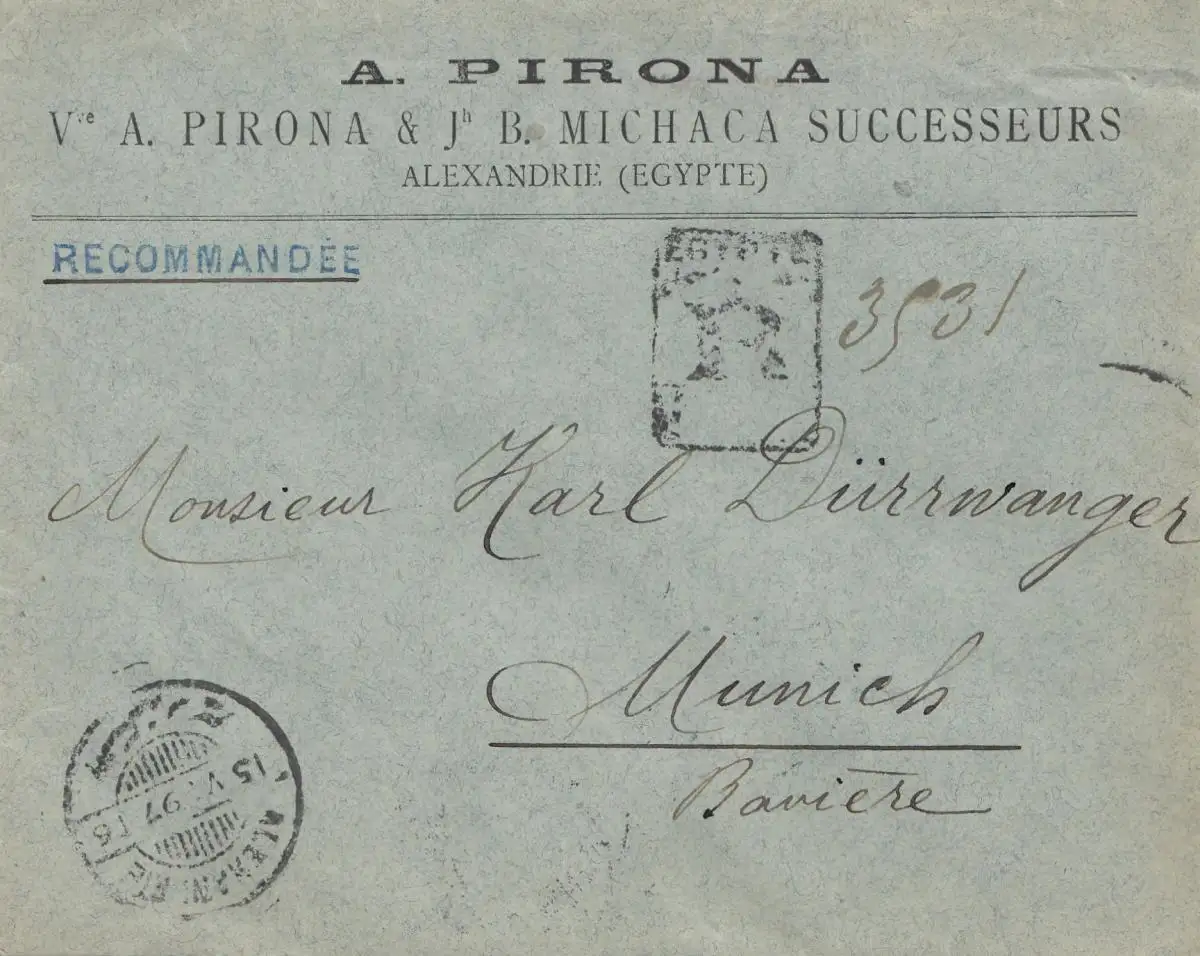 A. PIRONA
Vve A. PIRONA & Jh B. MICHACA SUCCESSEURS
ALEXANDRIE (EGYPTE)
RECOMMANDÉE
EGYPTE
R
3531
Monsieur Karl Dürrwanger
Munich
Bavière
15 V 97